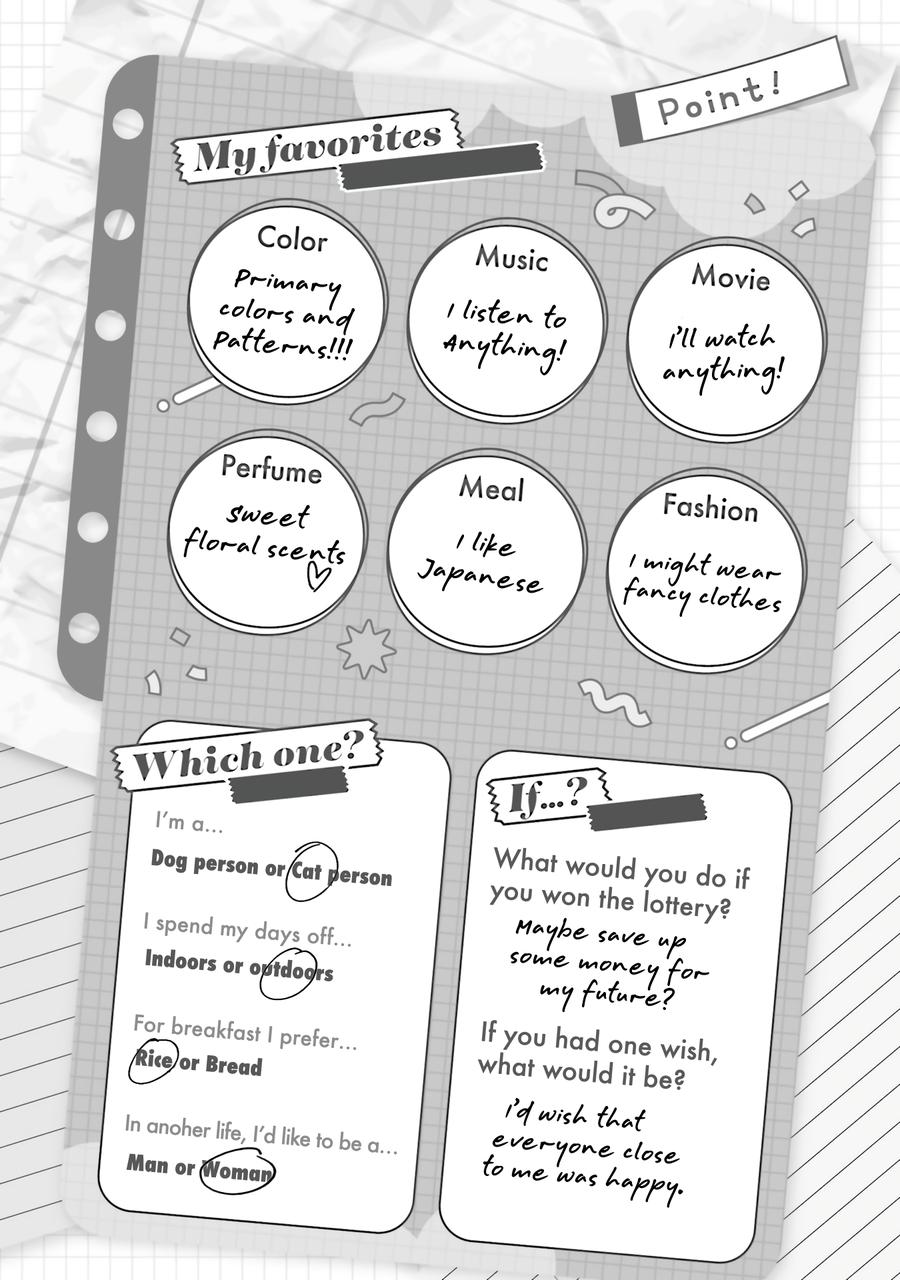 Point!
My favorites
Color
Primary
colors and
Patterns!!!
Music
I listen to
Anything!
Movie
i'll watch
anything!
Perfume
sweet
floral scents
Meal
I like
Japanese
Fashion
I might wear
fancy clothes
Which one?
I'm a...
Dog person or Cat person
I spend my days off...
Indoors or outdoors
For breakfast I prefer...
Rice or Bread
In anoher life, I'd like to be a...
Man or Woman
If...?
What would you do if
you won the lottery?
Maybe save up
some money for
my future?
If you had one wish,
what would it be?
i'd wish that
everyone close
to me was happy.